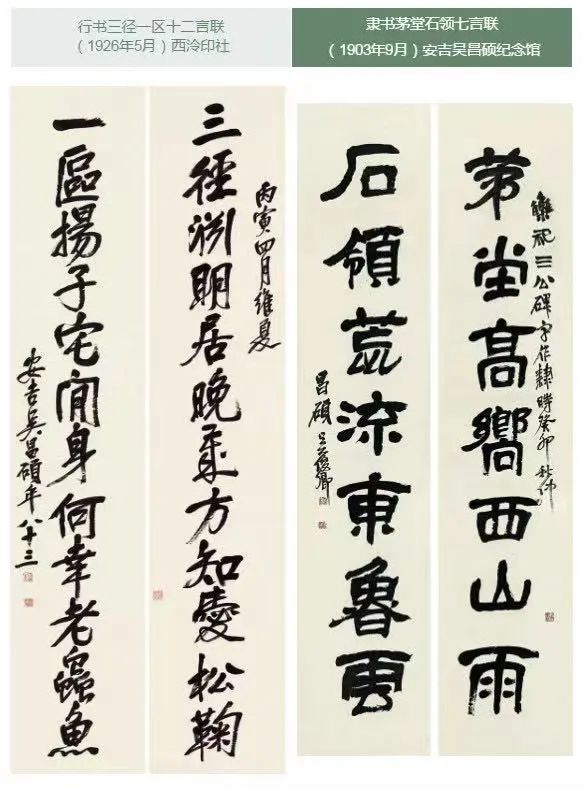 行书三径一区十二言联
（1926年5月）西泠印社
隶书茅堂石领七言联
（1903年9月）安吉吴昌硕纪念馆
丙寅四月維夏
三徑渕明居晚方知愛松鞠
一區揚子宅閒身何幸老蟲魚
安吉吳昌碩年八十三
祀三公碑字作隸時癸卯秋仲
茅堂高嚮西山雨
石領荒流東魯雲
昌碩吳俊卿